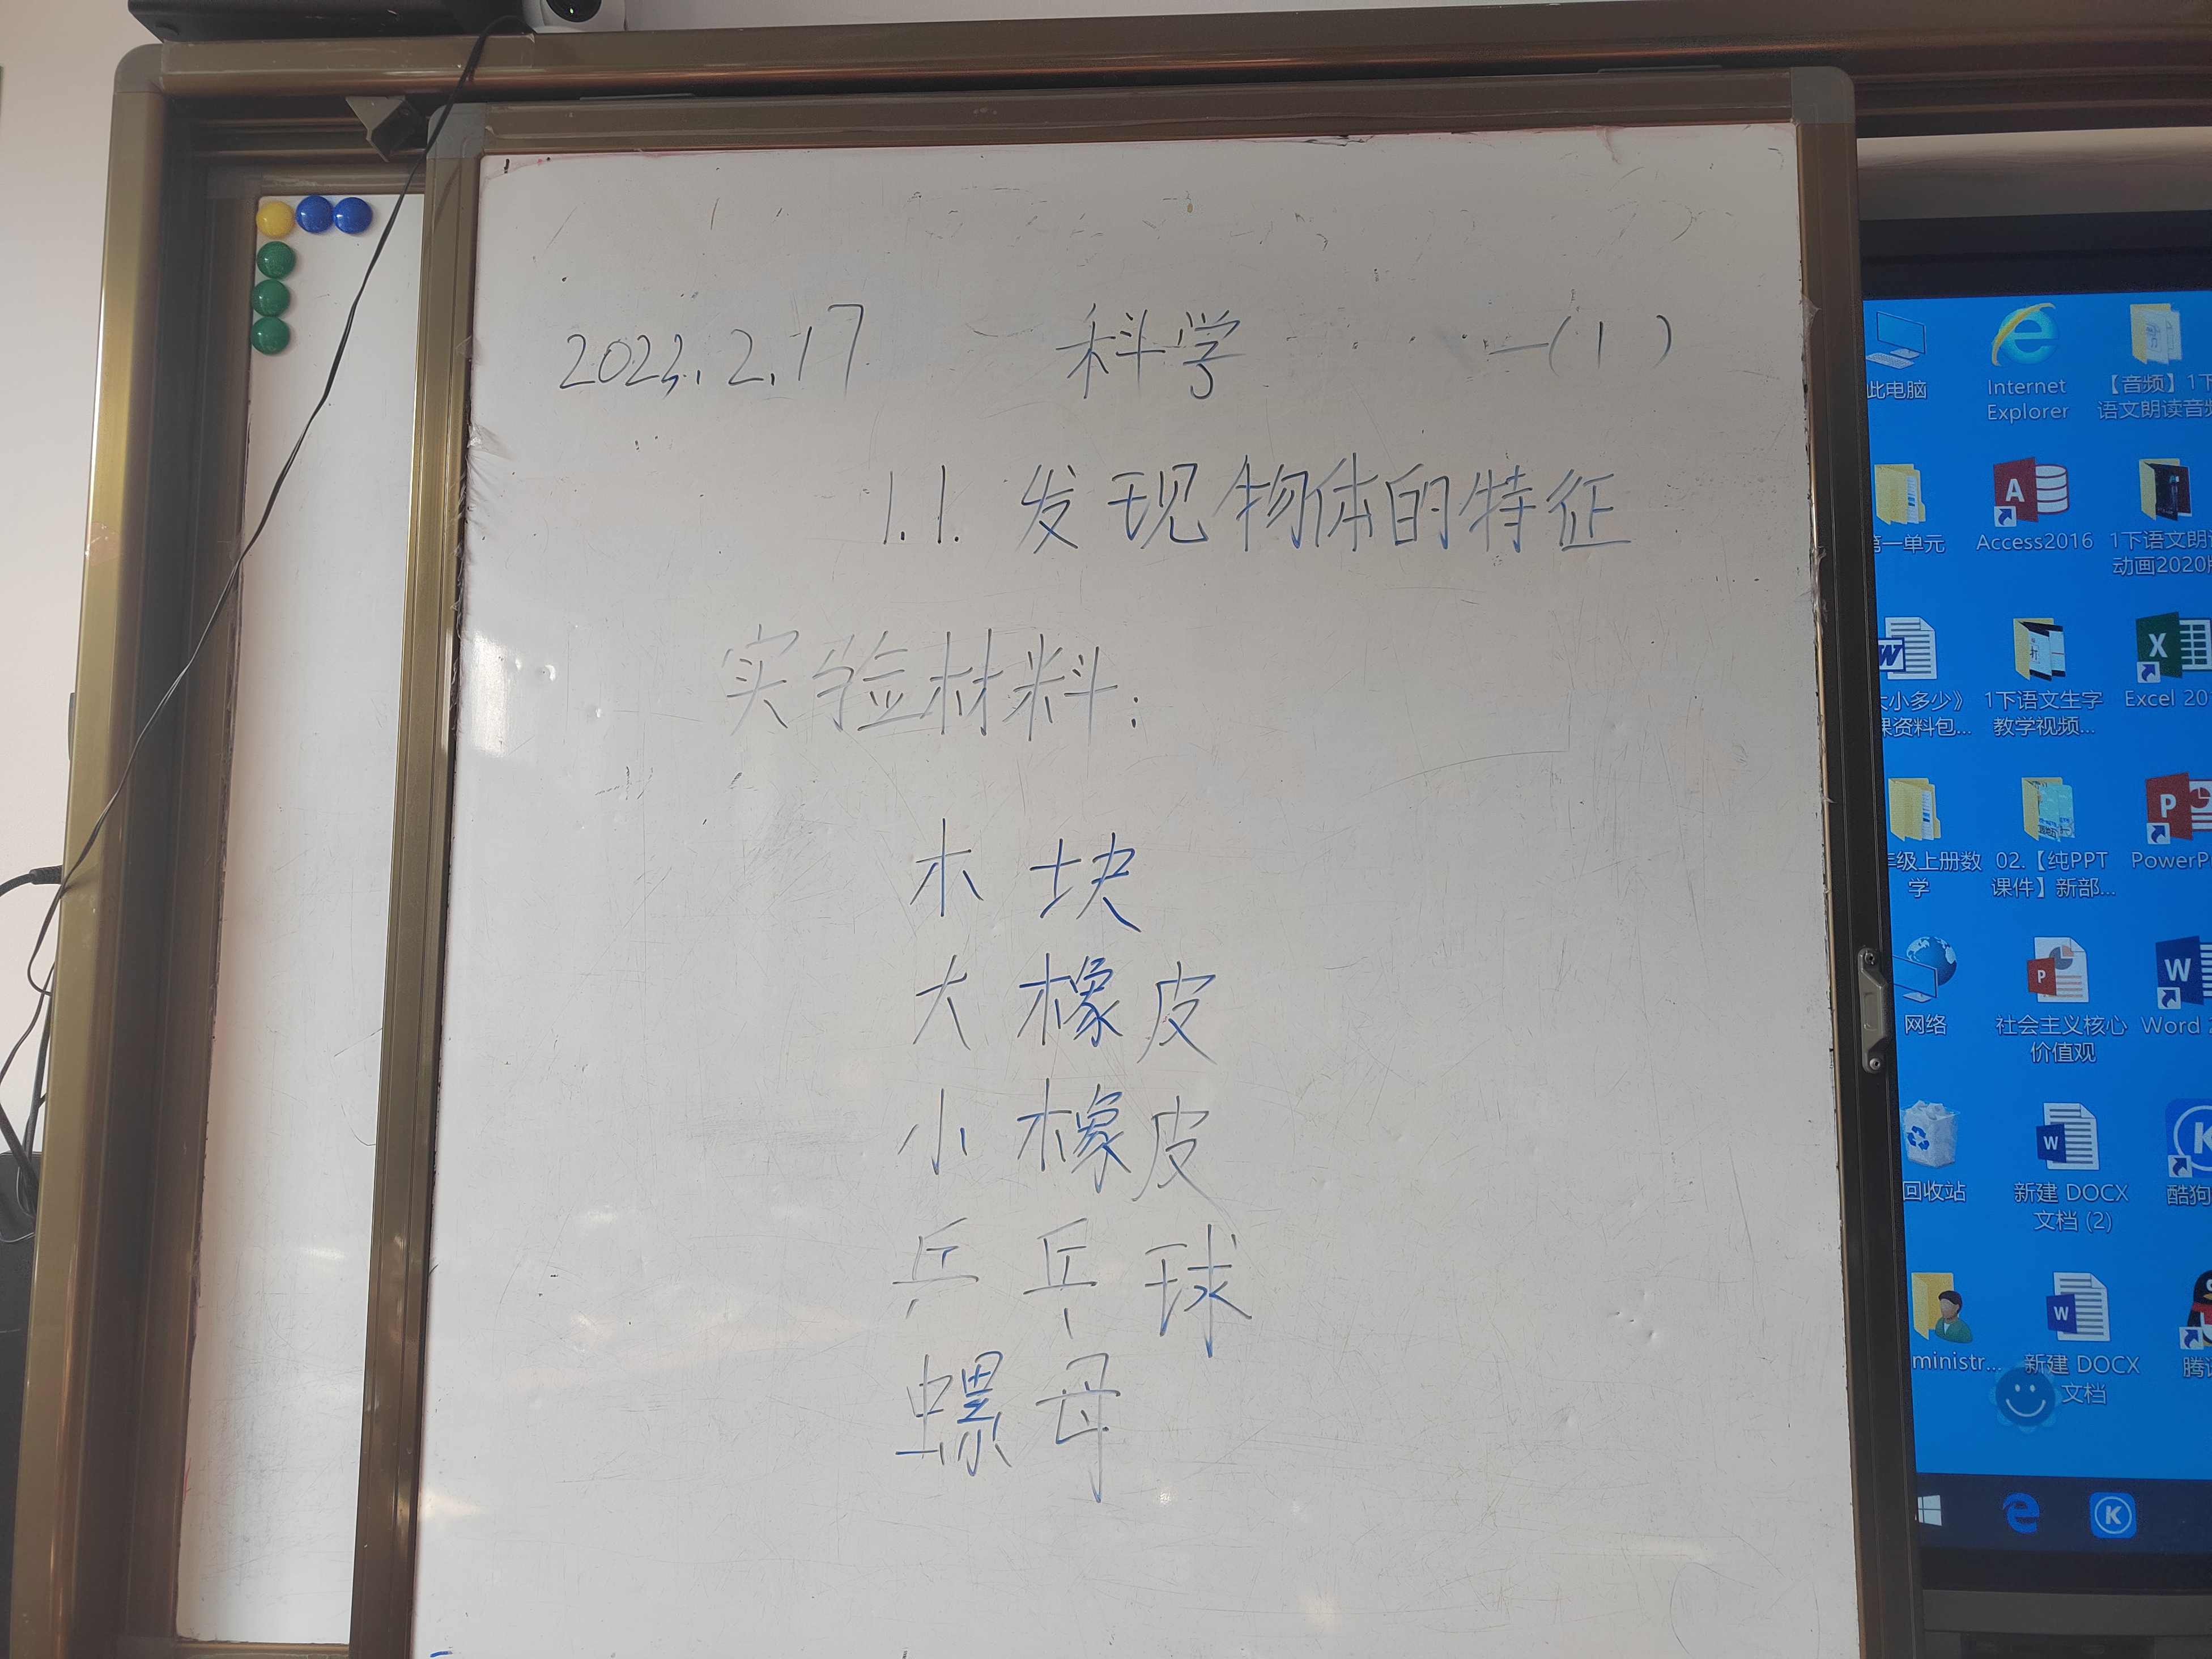 2023.2.17 科学 一(1)
1.1.发现物体的特征
实验材料:
木块
大橡皮
小橡皮
乒乓球
螺母
此电脑
Internet Explorer
【音频】1下
语文朗读音频
第一单元
Access2016
1下语文朗
动画2020
大小多少》
课资料包...
1下语文生字
教学视频...
Excel 20
年级上册数
学
02.【纯PPT
课件】新部...
PowerP
网络
社会主义核心
价值观
Word 2
回收站
新建 DOCX
文档 (2)
酷狗
ministr...
新建 DOCX
文档
腾